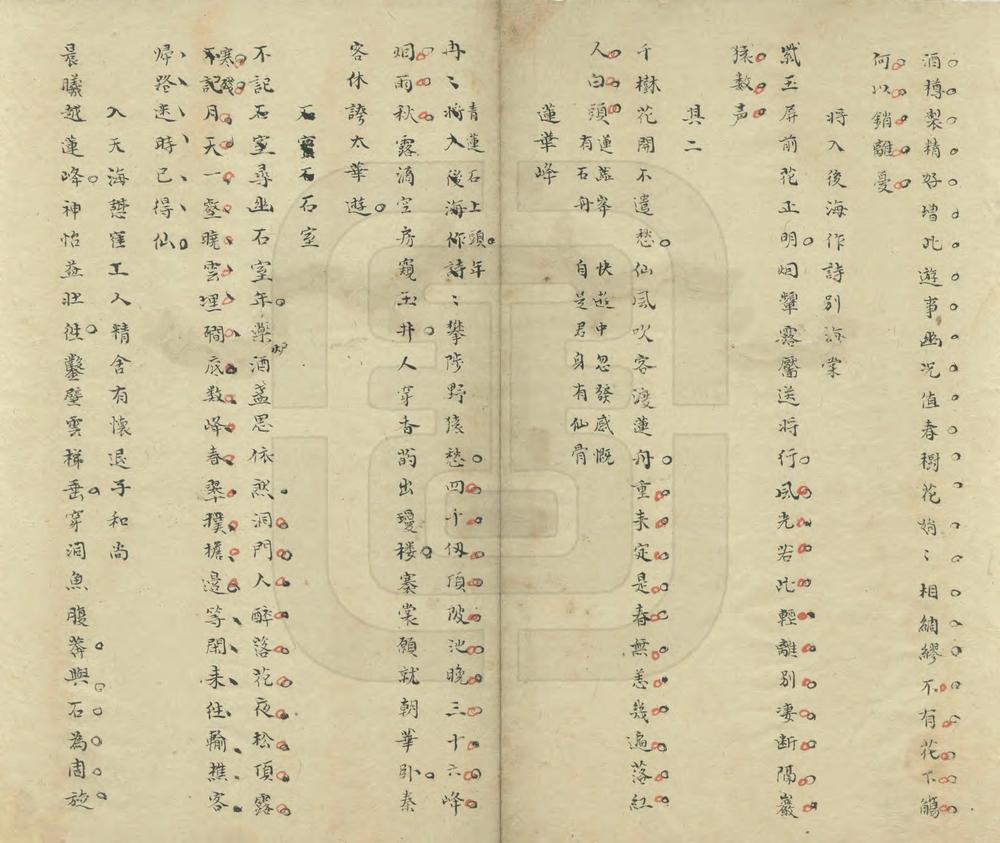 酒樽製精好增此遊事幽况值春榭花嬌〻相綢繆不有花下觴
何以銷離憂
將入後海作詩別海棠
紫玉屏前花正明烟鞏露靨送將行風光若此輕離別凄斷隔巖
猿数声
其二
千樹花開不遣愁仙風吹客渡蓮舟重来定是春無恙幾遍落紅
人白頭蓮蕋峯有石舟 快遊中忽發感慨自是君身有仙骨
蓮華峰
青蓮石上頭年
冉〻將入後海作詩〻攀陟野猿愁四千仞頂陂池晚三十六峰
烟雨秋露滴空房窺玉井人穿香菂出瓊楼褰裳願就朝華卧秦
客休誇太華遊
石室
不記石室尋幽石室年藥酒盞思依然洞門人醉落花夜松頂露
寒殘月天一壑曉雲埋磵底数峰春翠撲檐邊等閒来往輸樵客
歸路迷時已得仙
入天海憇僱工人精舍有懷退予和尚
晨曦越蓮峰神怡益壯往鑿壁雲梯垂穿洞魚腹莽輿石為周旋